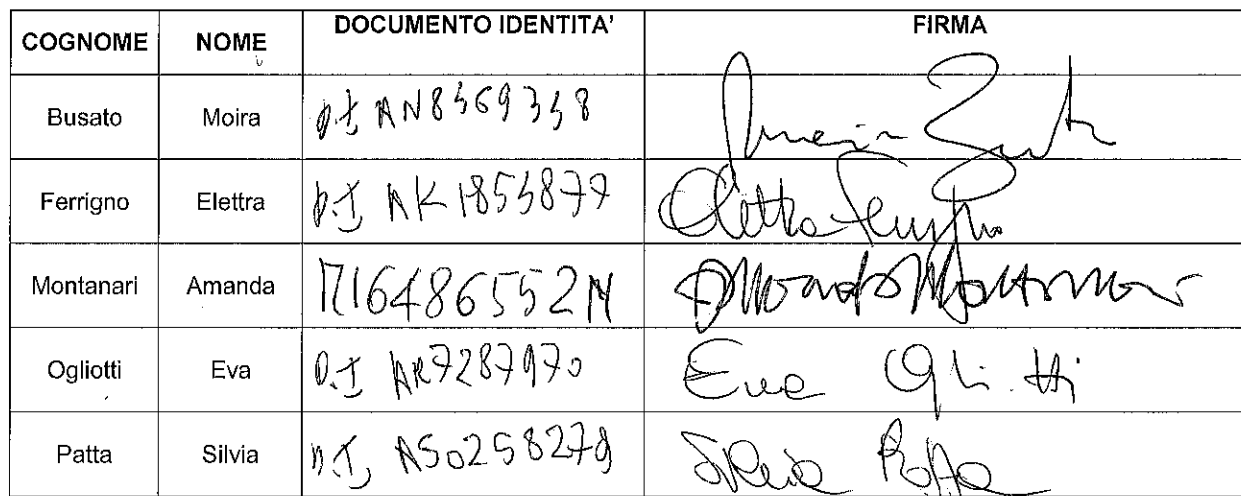 COGNOME NOME DOCUMENTO IDENTITA' FIRMA
Busato Moira D.I AN8369348 Moira
Ferrigno Elettra D.I AK1853877 Elettra Ferrigno
Montanari Amanda Amanda Montanari
Ogliotti Eva D.I AR7287970 Eva Ogliotti
Patta Silvia D.I AS0258279 Silvia Patta